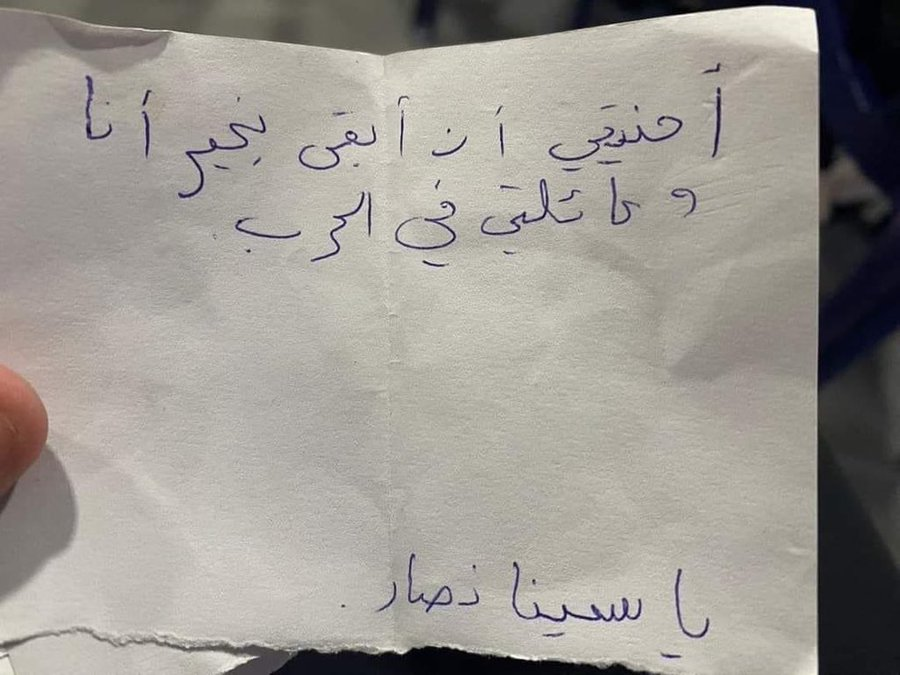 أ منيتي أن أبقى بخير أنا
وعائلتي في الحرب.
ياسينا نصار.